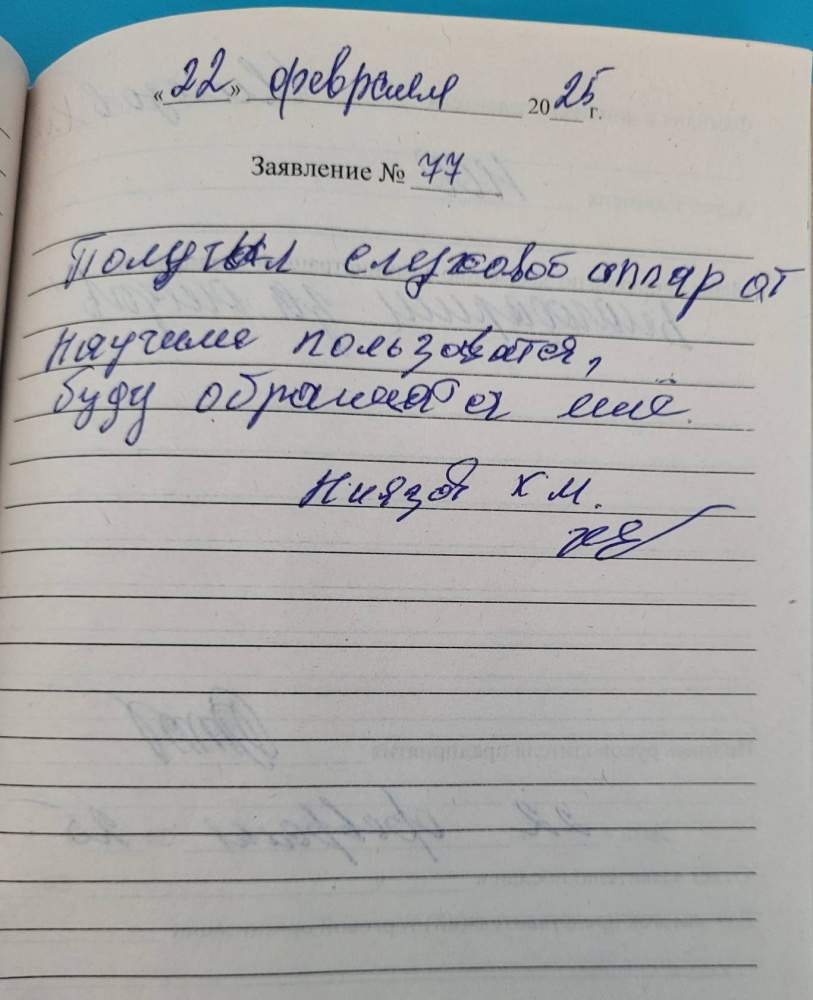 «22» февраля 2025 г.
Заявление № 77
Получил слуховой аппарат
научиме пользоватся,
буду обращатся ещё.
Ниязов Х М.